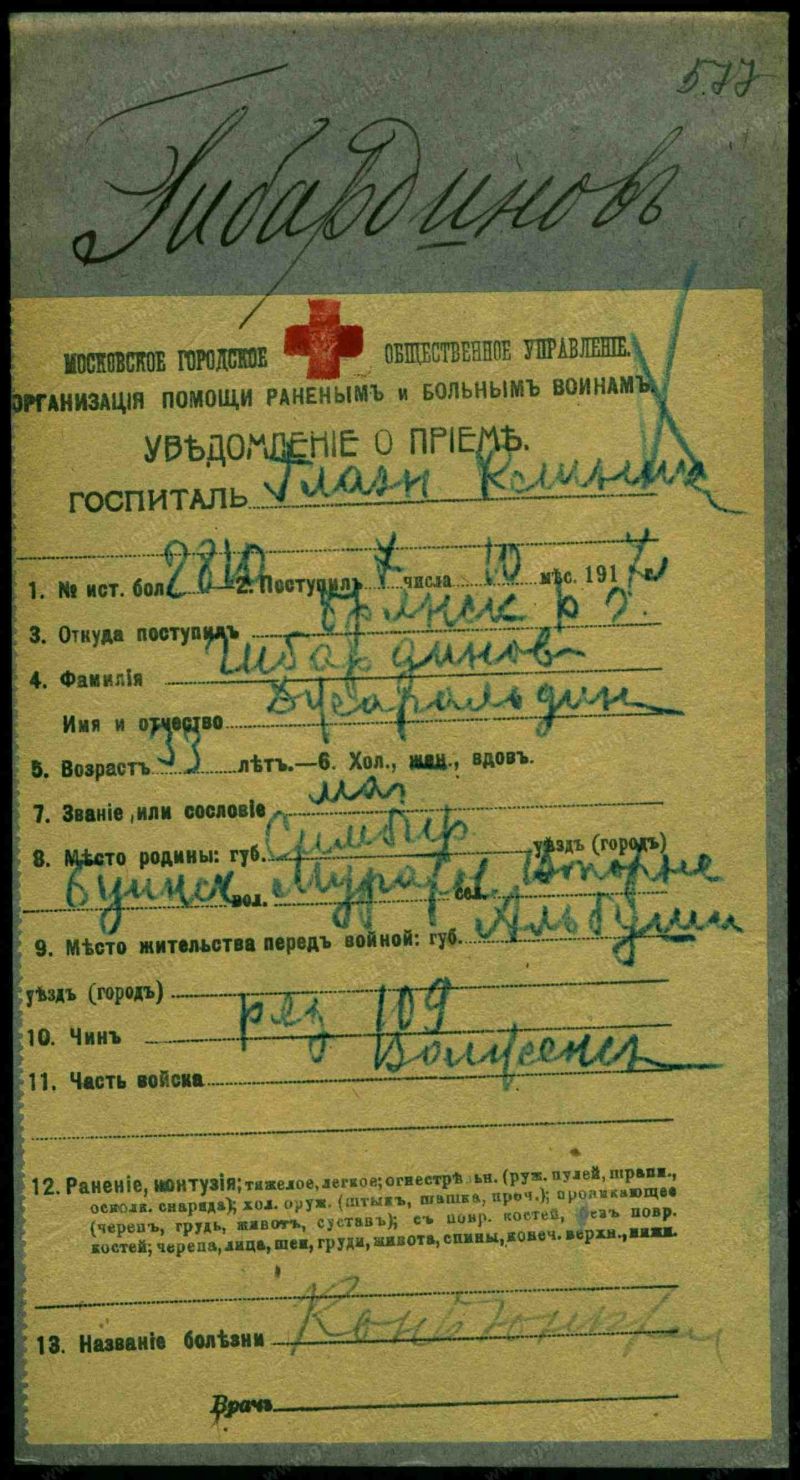 577
Гибардиновъ
МОСКОВСКОЕ ГОРОДСКОЕ ОБЩЕСТВЕННОЕ УПРАВЛЕНІЕ.
ОРГАНИЗАЦІЯ ПОМОЩИ РАНЕНЫМЪ и БОЛЬНЫМЪ ВОИНАМЪ
УВѢДОМЛЕНІЕ О ПРІЕМѢ.
ГОСПИТАЛЬ Глазн
1. № ист. бол. 2810 — 2. Поступилъ 7 числа 10 мѣс. 1917 г.
3. Откуда поступилъ Брянск р
4. Фамилія Гибардинов
Имя и отчество
5. Возрастъ 33 лѣтъ.—6. Хол., жен., вдовъ.
7. Званіе или сословіе
8. Мѣсто родины: губ. Симбир уѣздъ (городъ)
Буинск вол. Мурат сел. Вторые
9. Мѣсто жительства передъ войной: губ. Альбуши
уѣздъ (городъ)
10. Чинъ ряд 109
11. Часть войска Волженск
12. Раненіе, контузія; тяжелое, легкое; огнестрѣльн. (руж. пулей, шрапн.,
осколк. снаряда); хол. оруж. (штыкъ, шашка, проч.); проникающее
(черепъ, грудь, животъ, суставъ); съ повр. костей, безъ повр.
костей; черепа, лица, шеи, груди, живота, спины, конеч. верхн., нижн.
13. Названіе болѣзни
Врачъ